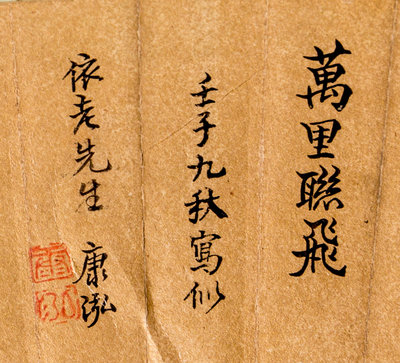 萬里聯飛
壬子九秋寫似
依老先生
康泓